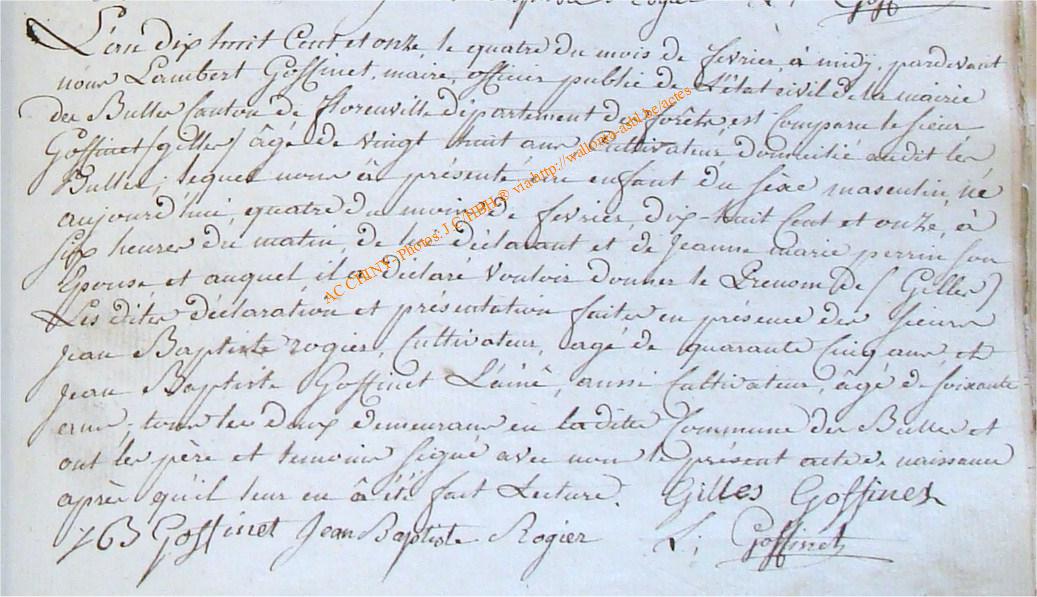 L'an dix huit Cent et onze le quatre du mois de fevrier à midy, pardevant
nous Lambert Goffinet, maire, officier public de L'état civil de la mairie
des Bulles Canton de florenville département des forêts est Comparu le Sieur
Goffinet (gilles) âgé de vingt huit ans Cultivateur domicilié audit les
Bulles; lequel nous à présenté un enfant du sèxe masculin, né
aujourd'hui, quatre du mois de fevrier, dix-huit Cent et onze, à
Six heures du matin, de lui déclarant et de Jeanne marie perrin son
Epouse et auquel il a déclaré vouloir donner le Prenom de (Gilles)
Les dites déclaration et présentation faites en présence des Sieurs
Jean Baptiste rogier, Cultivateur, agé de quarante Cinq ans, et
Jean Baptiste Goffinet L'ainé, aussi Cultivateur, âgé de soixante
ans; tous les deux demeurans en la dite Commune des Bulles et
ont les père et temoins signé avec nous le présent acte de naissance
après qu'il leur en à été fait Lecture. Gilles Goffinet
J B Goffinet Jean Baptiste Rogier L; Goffinet
AC CHINY - Photos: J.C/HBH ® via http://wallonia-asbl.be/actes